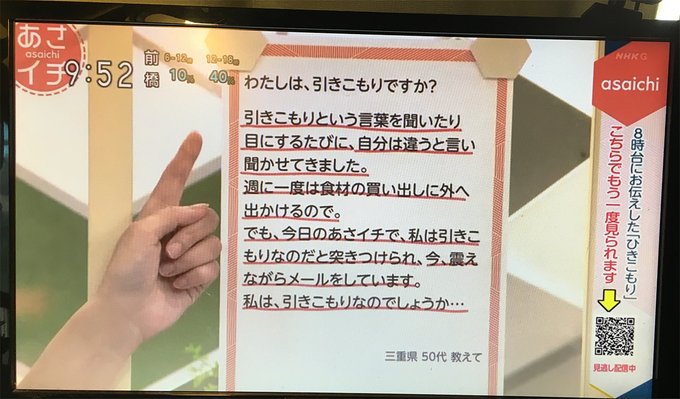 あさ
asaichi
イチ
9:52
前橋
6-12時 12-18時
10% 40%
わたしは、引きこもりですか?
引きこもりという言葉を聞いたり
目にするたびに、自分は違うと言い
聞かせてきました。
週に一度は食材の買い出しに外へ
出かけるので。
でも、今日のあさイチで、私は引きこ
もりなのだと突きつけられ、今、震え
ながらメールをしています。
私は、引きこもりなのでしょうか…
三重県 50代 教えて
NHK G
asaichi
8時台にお伝えした「ひきこもり」
こちらでもう一度見られます
見逃し配信中